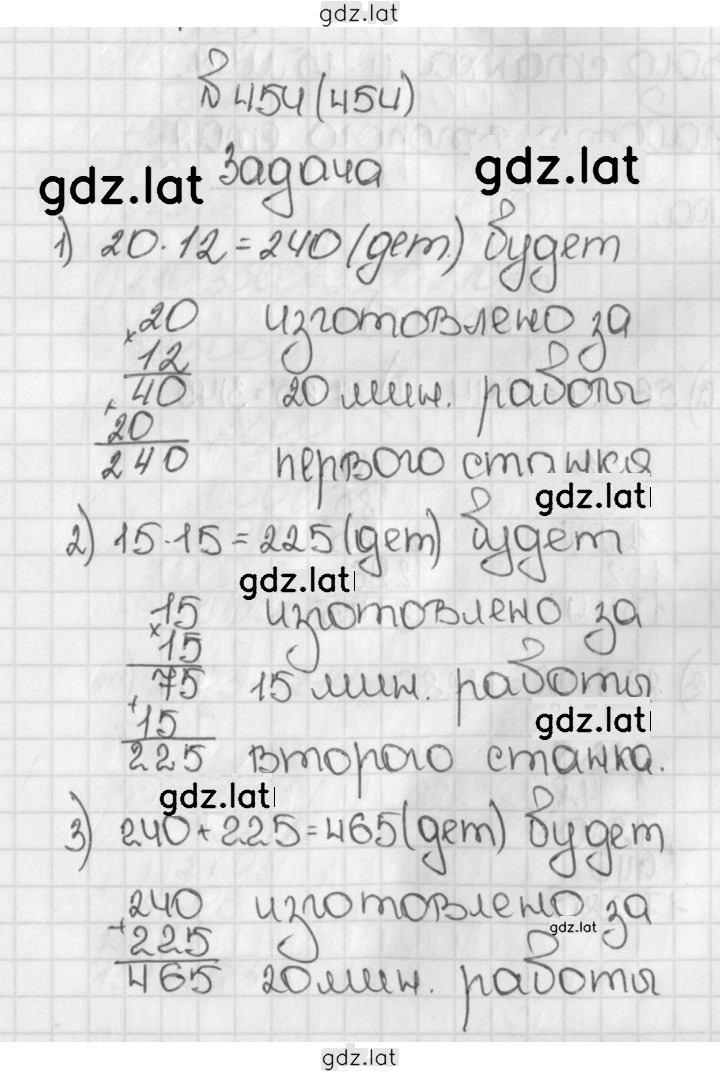 gdz.lat
№ 454 (454)
gdz.lat Задача gdz.lat
1) 20 · 12 = 240 (дет.) будет
×20 изготовлено за
12
+40 20 мин. работы
20
240 первого станка
gdz.lat
2) 15 · 15 = 225 (дет) будет
gdz.lat
×15 изготовлено за
15
+75 15 мин. работы
15 gdz.lat
225 второго станка.
gdz.lat
3) 240 + 225 = 465 (дет) будет
+240 изготовлено за
225 gdz.lat
465 20 мин. работы
gdz.lat